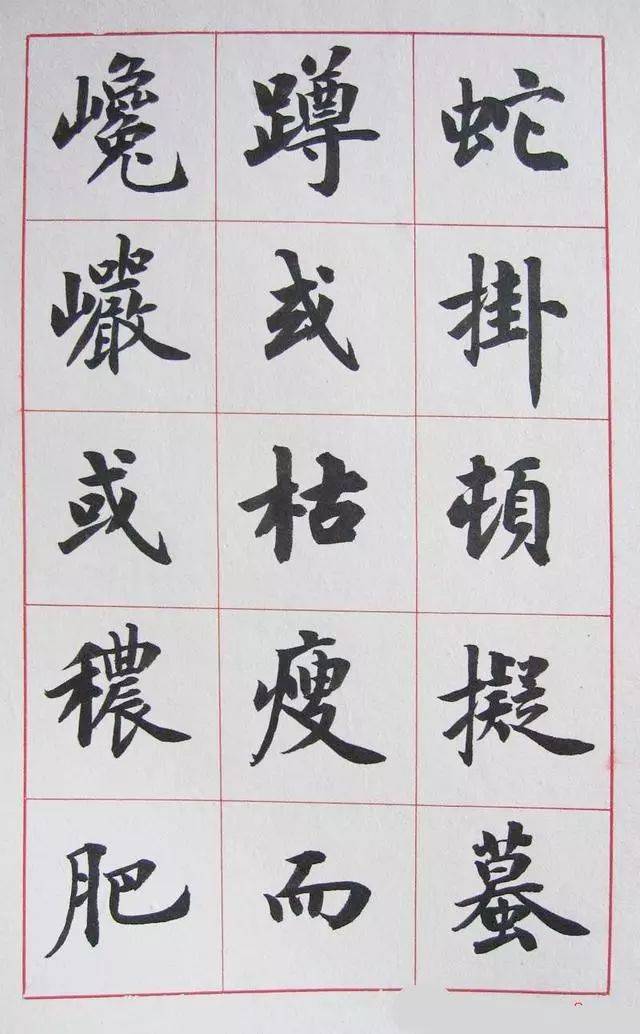 蛇掛頓擬蟇
蹲或枯瘦而
巉巖或穠肥